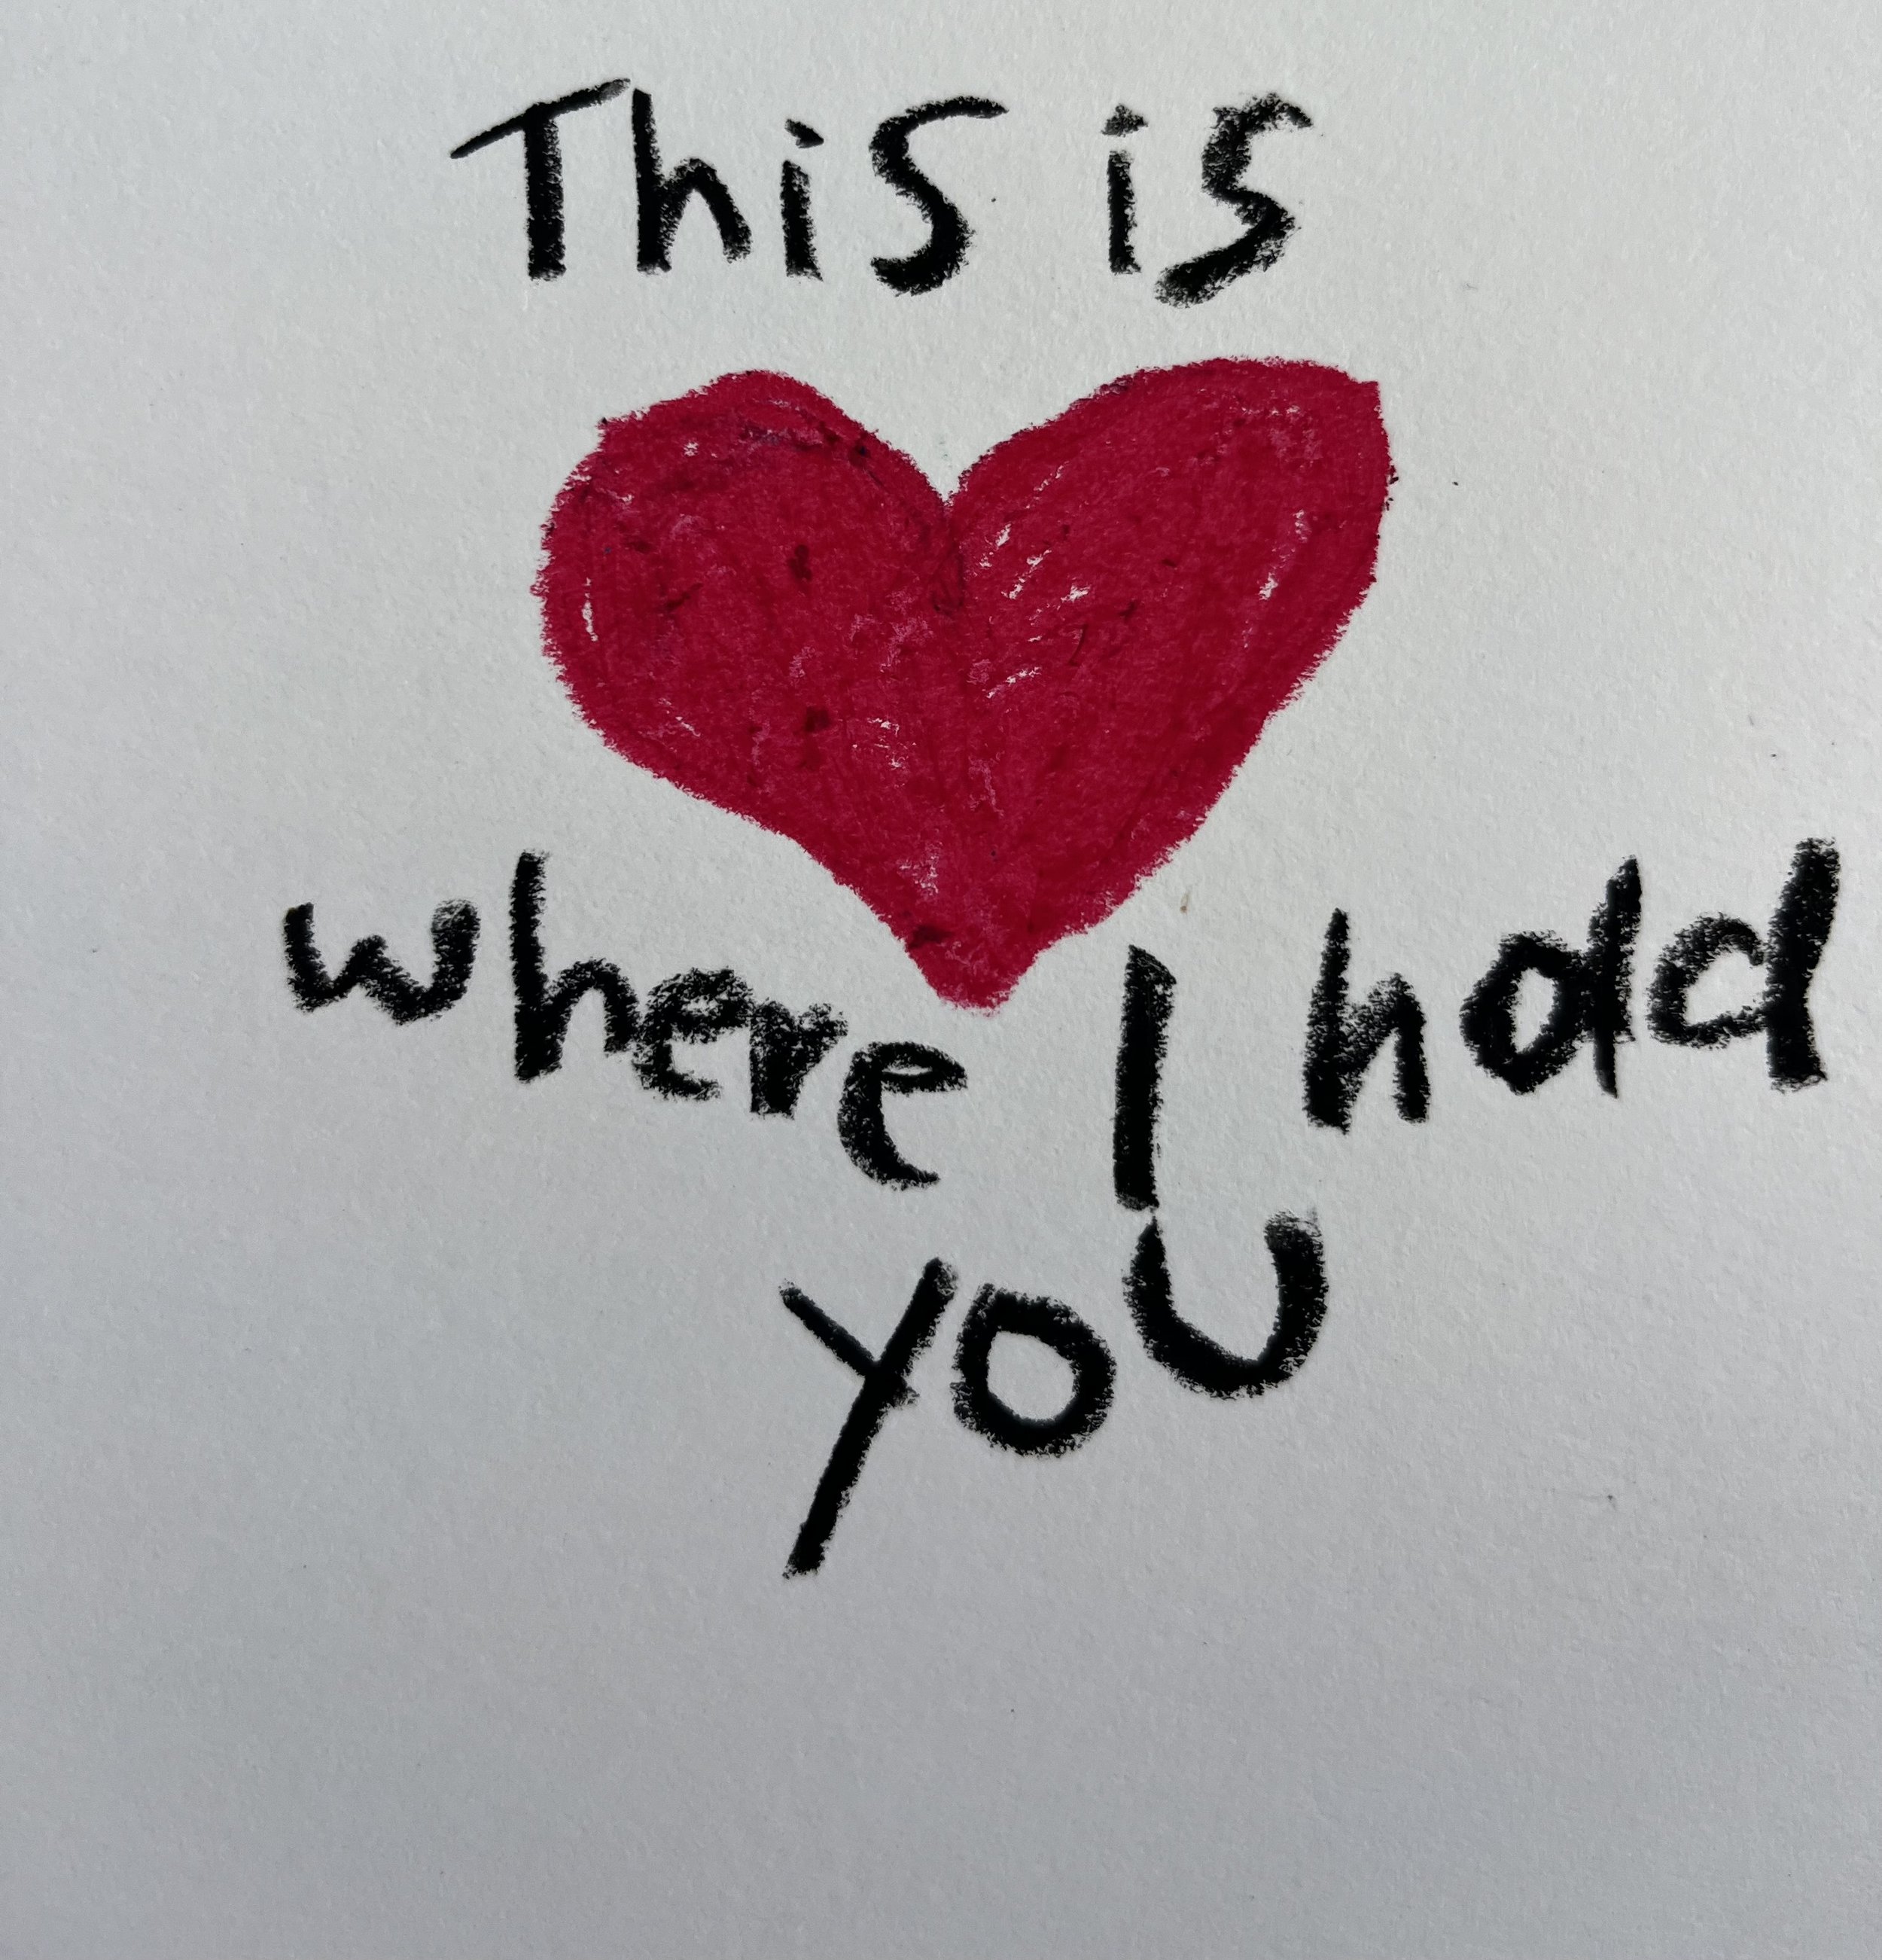 This is
where I hold
you